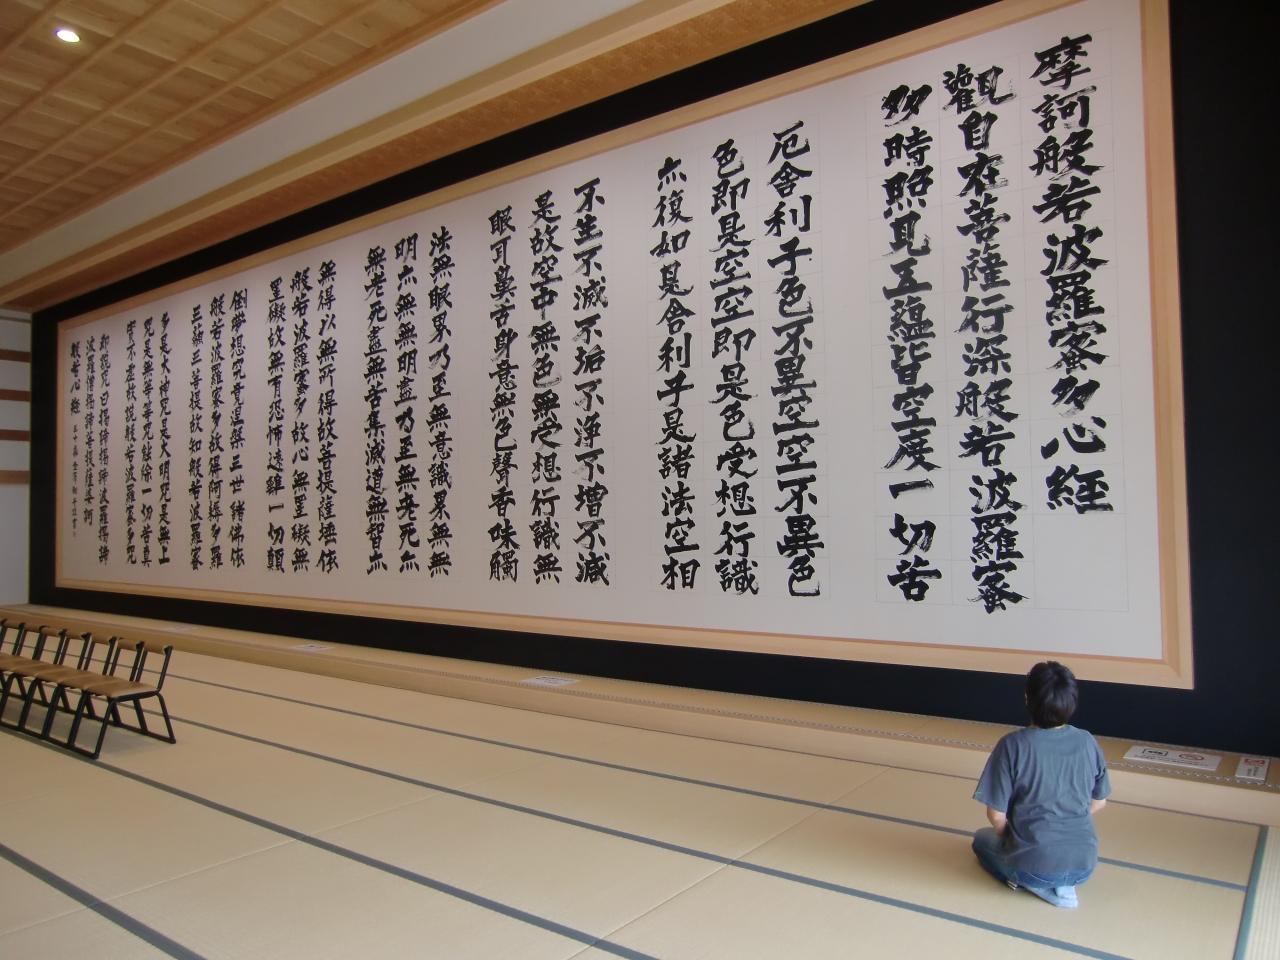 摩訶般若波羅蜜多心経
觀自在菩薩行深般若波羅蜜
多時照見五蘊皆空度一切苦
厄舎利子色不異空空不異色
色即是空空即是色受想行識
亦復如是舎利子是諸法空相
不生不滅不垢不浄不増不減
是故空中無色無受想行識無
眼耳鼻舌身意無色聲香味觸
法無眼界乃至無意識界無無
明亦無無明盡乃至無老死亦
無老死盡無苦集滅道無智亦
無得以無所得故菩提薩埵依
般若波羅蜜多故心無罣礙無
罣礙故無有恐怖遠離一切顛
倒夢想究竟涅槃三世諸佛依
般若波羅蜜多故得阿耨多羅
三藐三菩提故知般若波羅蜜
多是大神咒是大明咒是無上
咒是無等等咒能除一切苦真
實不虚故説般若波羅蜜多咒
即説咒曰揭諦揭諦波羅揭諦
波羅僧揭諦菩提薩婆訶
般若心経